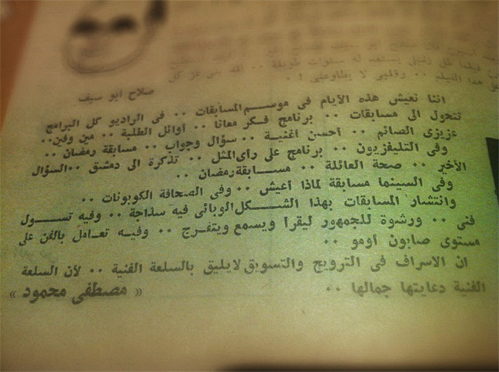 صلاح أبو سيف
اننا نعيش هذه الأيام فى موسم المسابقات .. فى الراديو كل البرامج
تتحول الى مسابقات .. برنامج فكر معانا .. أوائل الطلبة .. مين وفين ..
عزيزى الصائم .. احسن اغنية .. سؤال وجواب .. مسابقة رمضان ..
وفى التليفزيون .. برنامج على رأى المثل .. تذكرة الى دمشق .. السؤال
الأخير .. صحة العائلة .. مسابقة رمضان ..
وفى السينما مسابقة لماذا أعيش .. وفى الصحافة الكوبونات ..
وانتشار المسابقات بهذا الشكل الوبائى فيه سذاجة .. وفيه تسول
فنى .. ورشوة للجمهور ليقرأ ويسمع ويتفرج .. وفيه تعامل بالفن على
مستوى صابون أومو ..
ان الاسراف فى الترويج والتسويق لايليق بالسلعة الفنية .. لأن السلعة
الفنية دعايتها جمالها .. « مصطفى محمود »